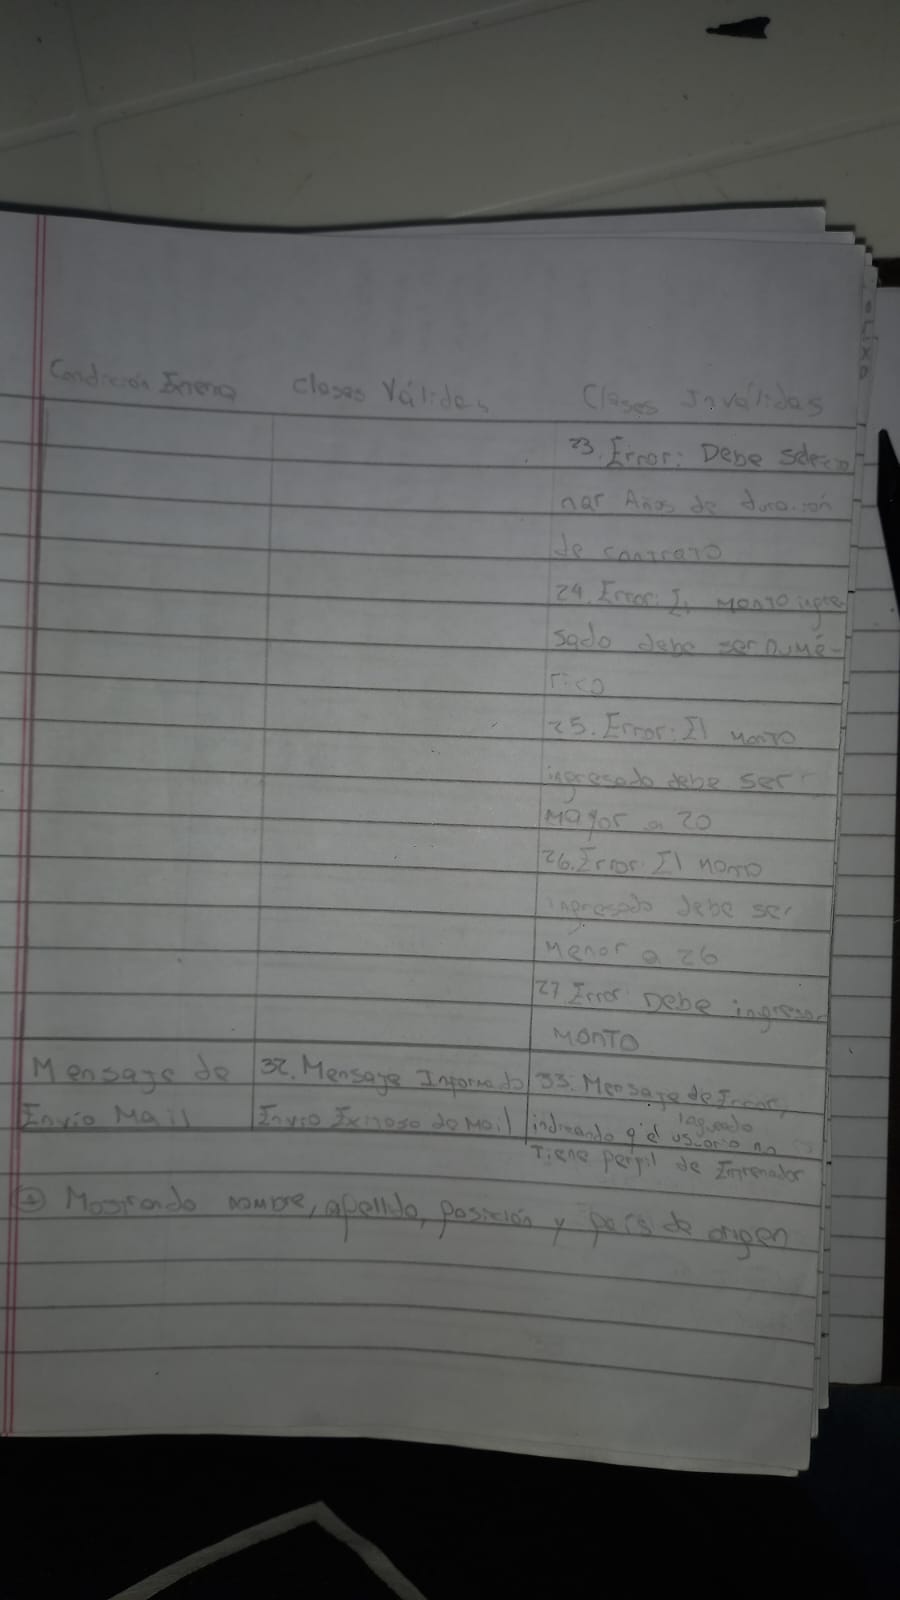 Condición Externa Clases Válidas Clases Inválidas
23. Error: Debe seleccio
nar Años de duración
de contrato
24. Error: El monto ingre-
sado debe ser numé-
rico
25. Error: El monto
ingresado debe ser
mayor a 20
26. Error: El monto
ingresado debe ser
menor a 26
27. Error: Debe ingresar
monto
Mensaje de 32. Mensaje Informado 33. Mensaje de Error,
Envío Mail Envío Exitoso de Mail indicando q' el usuario logueado no
tiene perfil de Entrenador
Mostrando nombre, apellido, posición y país de origen